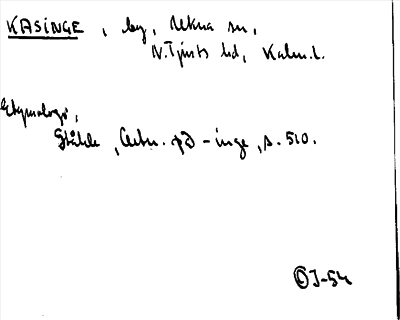 KASINGE, by, Rekna sn,
N. Tjusts hd, Kalm. l.
Etymologi,
Ståhle, Ortn. på -inge, s. 510.
OJ-54